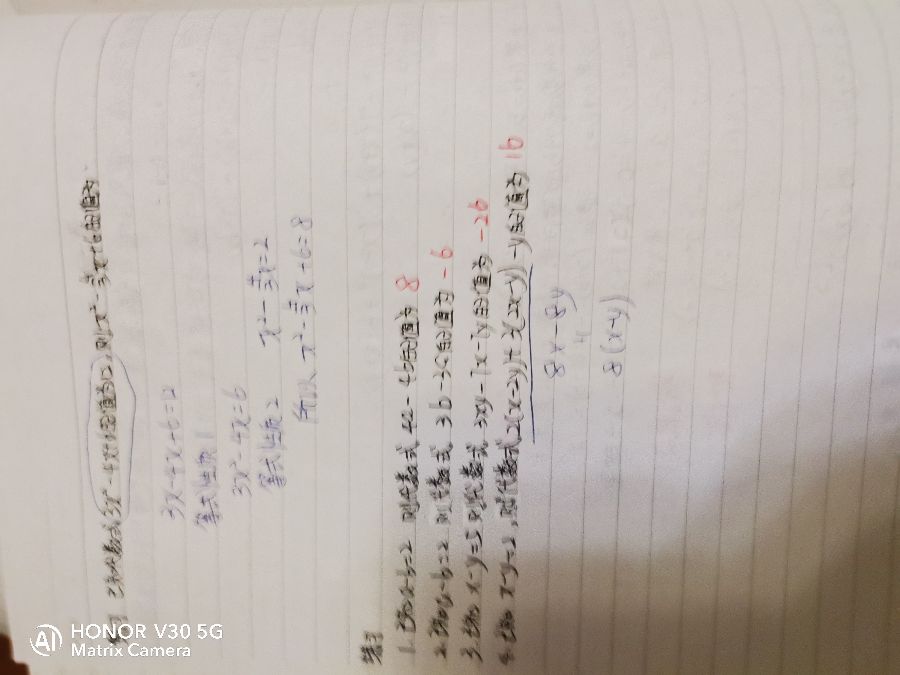 例1 已知代数式3x²-4x+6的值为12,则x²-4/3x+6的值为
3x-4x+6=12
等式性质1
3x²-4x=6
等式性质2 x²-4/3x=2
所以 x²-4/3x+6=8
练习
1. 已知a-b=2 则代数式 4a-4b的值为 8
2. 已知a-b=2 则代数式 3b-3a的值为 -6
3. 已知 x-y=5 则代数式 的值为 -26
4. 已知 x-y=2,则代数式2(x-2y)+3(2x-y)-y的值为 16
8x-8y
8(x-y)
HONOR V30 5G
Matrix Camera